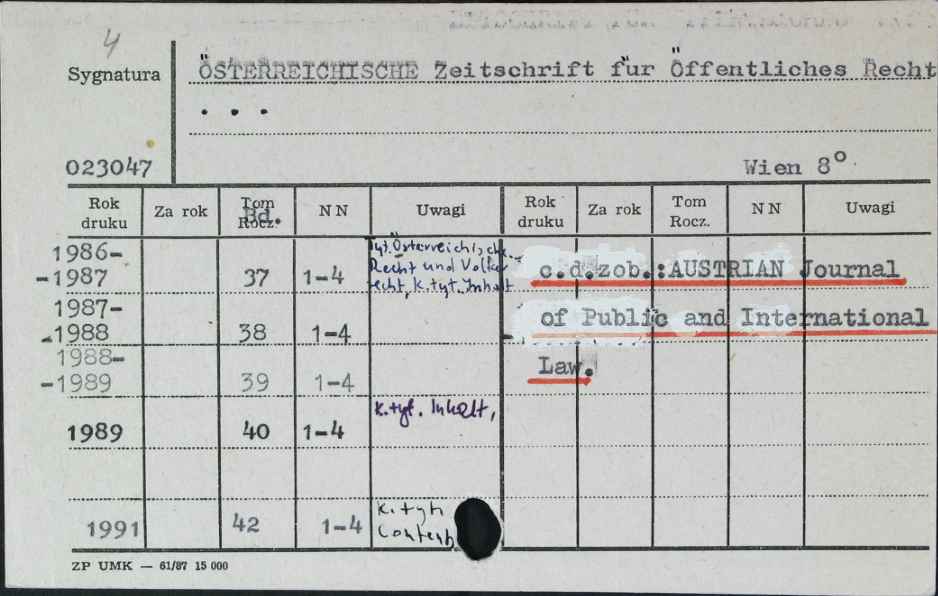 4
Sygnatura
ÖSTERREICHISCHE Zeitschrift für Öffentliches Recht
. . .
023047
Wien 8°
Rok druku Za rok Tom Rocz. Bd. NN Uwagi Rok druku Za rok Tom Rocz. NN Uwagi
1986-
-1987 37 1-4
Recht und
K.tyt. Inhalt
c.d.zob.:AUSTRIAN Journal
1987-
-1988 38 1-4
of Public and International
1988-
-1989 39 1-4
Law.
1989 40 1-4 K.tyt. Inhalt,
1991 42 1-4 K.tyt
ZP UMK — 61/87 15 000